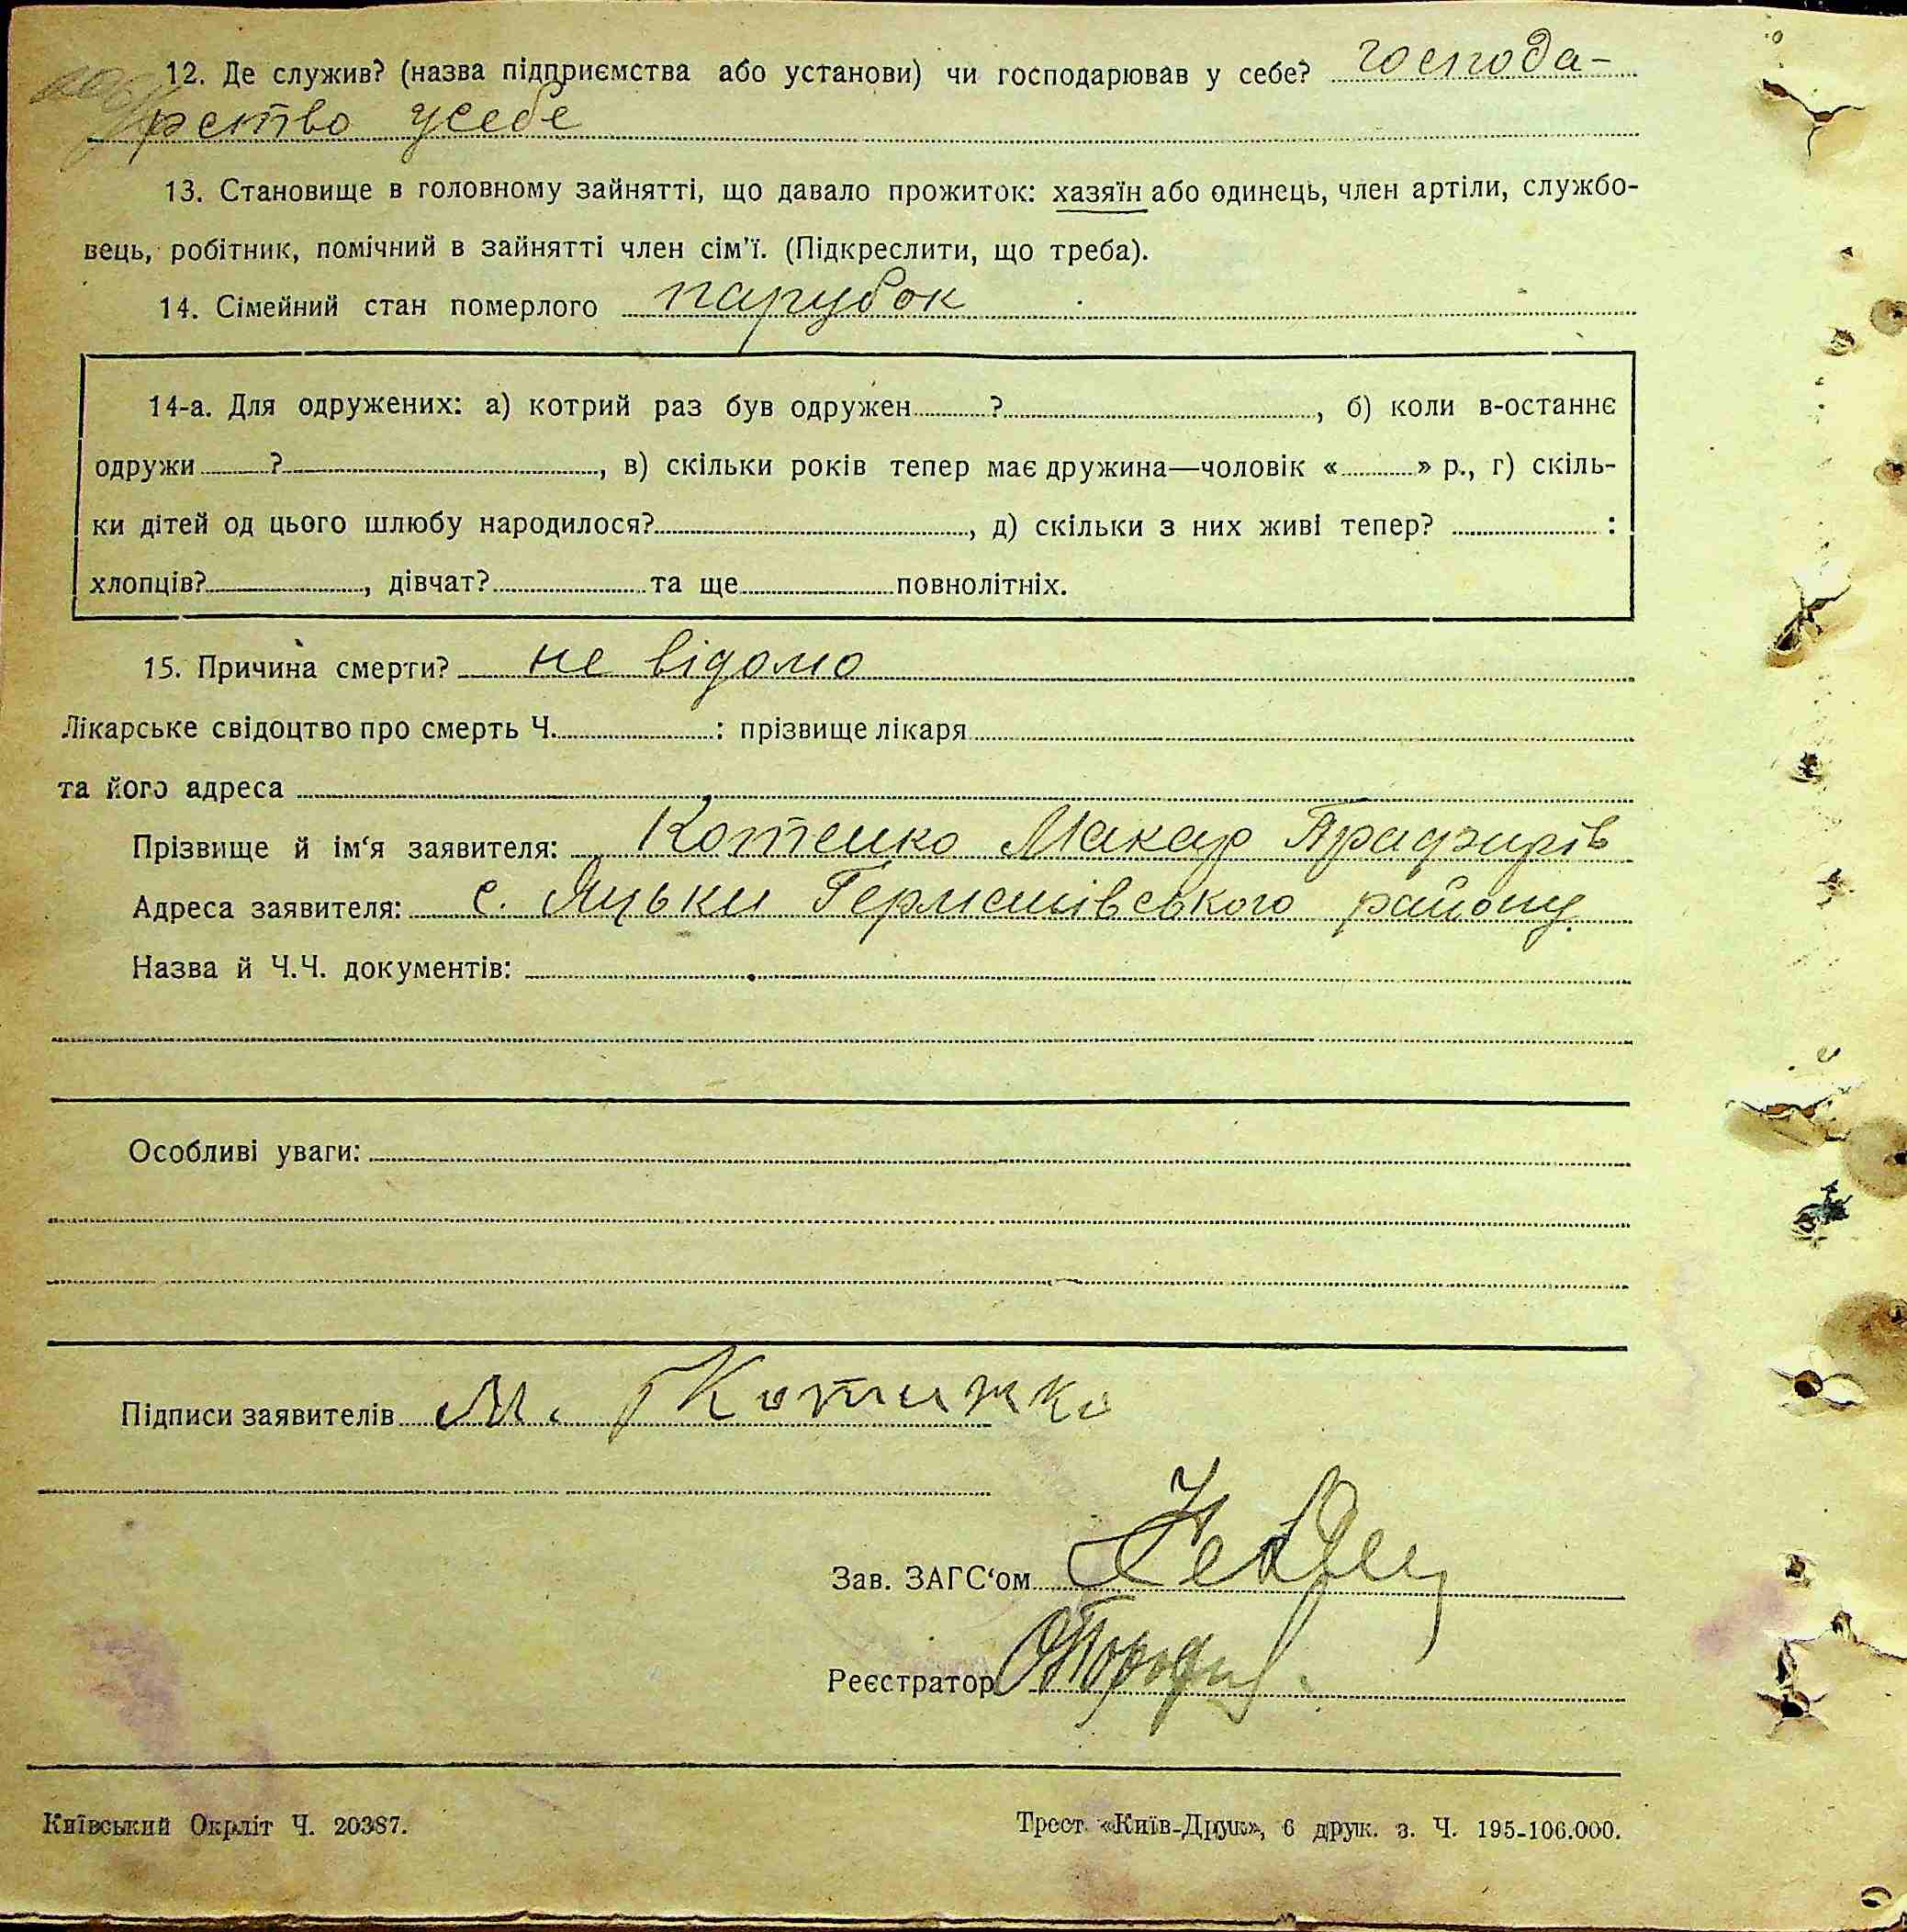 12. Де служив? (назва підприємства або установи) чи господарював у себе? господа-
рство усебе
13. Становище в головному зайнятті, що давало прожиток: хазяїн або одинець, член артіли, службо-
вець, робітник, помічний в зайнятті член сім'ї. (Підкреслити, що треба).
14. Сімейний стан померлого парубок
14-а. Для одружених: а) котрий раз був одружен ? , б) коли в-останнє
одружи ? , в) скільки років тепер має дружина—чоловік « » р., г) скіль-
ки дітей од цього шлюбу народилося? , д) скільки з них живі тепер? :
хлопців? , дівчат? та ще повнолітніх.
15. Причина смерти? не відомо
Лікарське свідоцтво про смерть Ч. : прізвище лікаря
та його адреса
Прізвище й ім'я заявителя: Котенко Макар
Адреса заявителя: с. Яцьки району
Назва й Ч.Ч. документів:
Особливі уваги:
Підписи заявителів М.
Зав. ЗАГС'ом
Реєстратор
Київський Окрліт Ч. 20387.
Трест «Київ-Друк», 6 друк. з. Ч. 195-106.000.